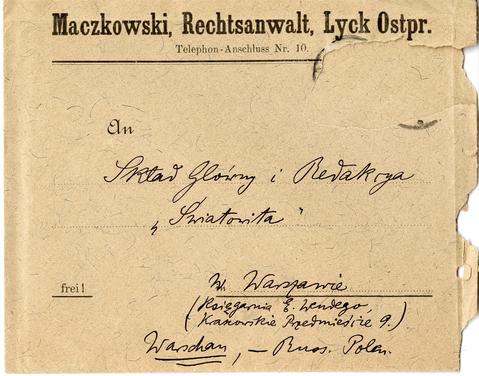 Maczkowski, Rechtsanwalt, Lyck Ostpr.
Telephon-Anschluss Nr. 10.
An
Skład Główny i Redakcya
„Światowita"
frei!
w Warszawie
(Księgarnia E. Wendego,
Krakowskie Przedmieście 9.)
Warschau, — Russ. Polen.